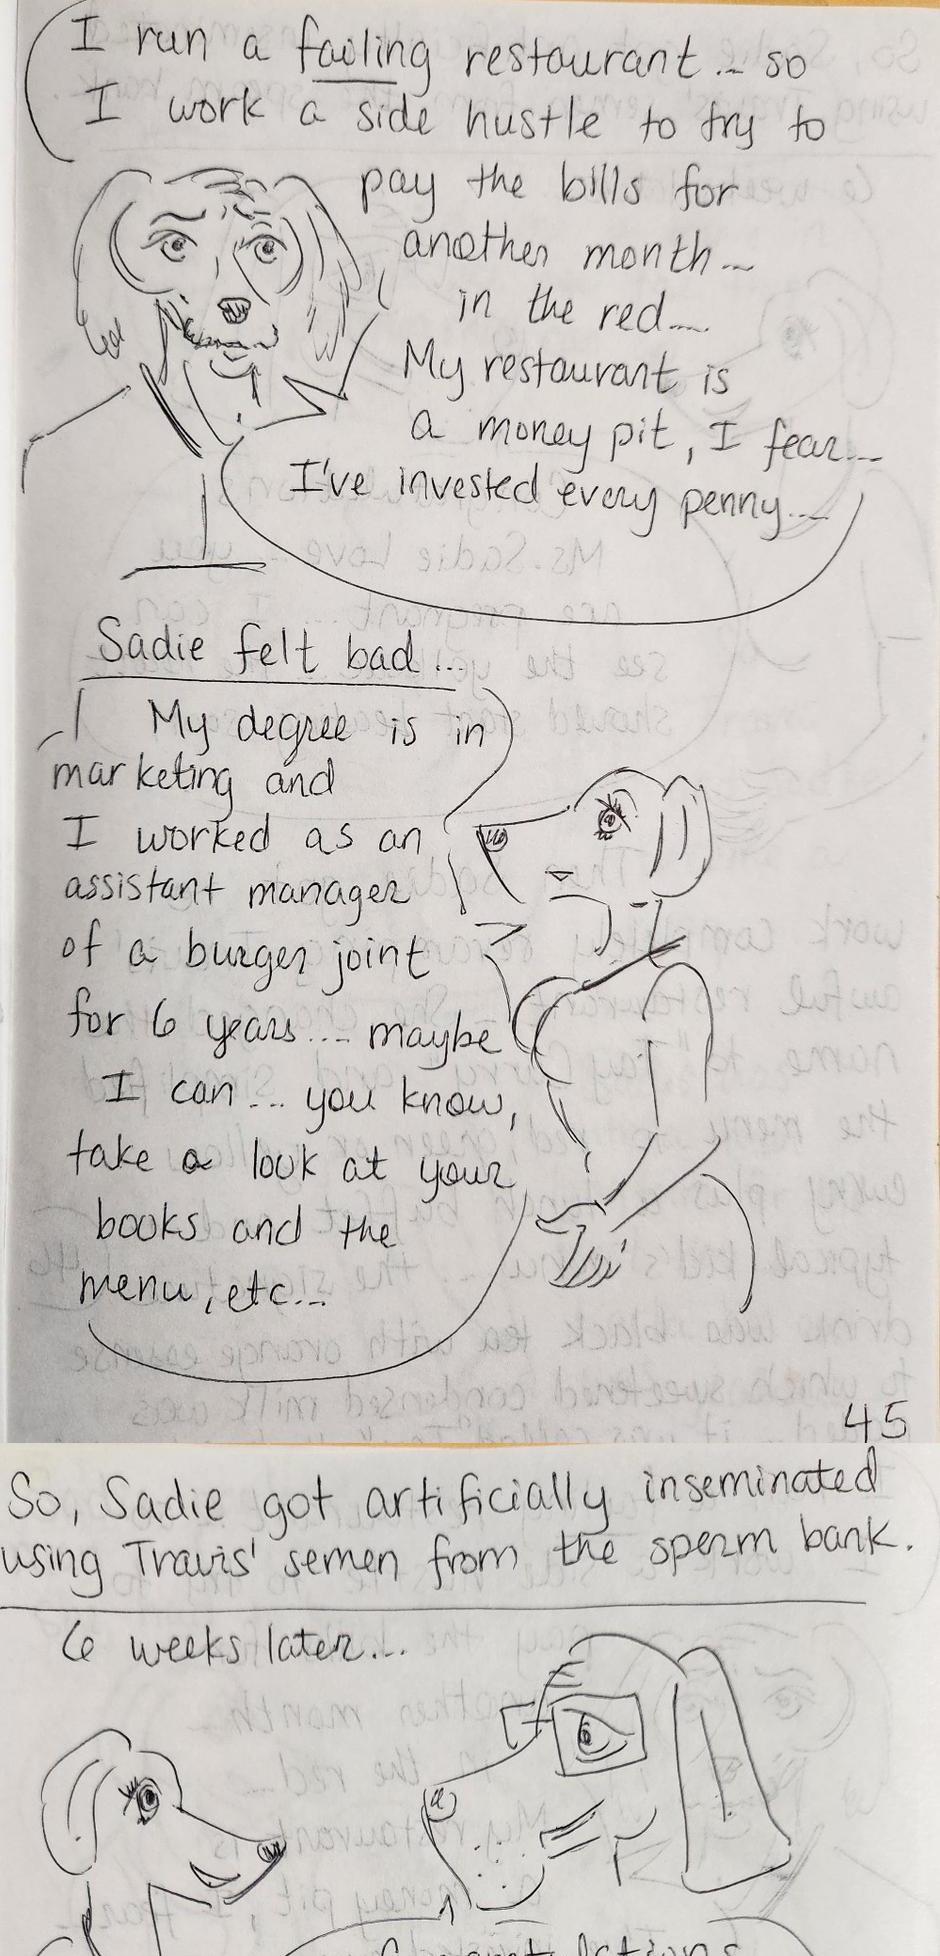 I run a failing restaurant... so
I work a side hustle to try to
pay the bills for
another month...
in the red....
My restaurant is
a money pit, I fear...
I've invested every penny...
Sadie felt bad...
My degree is in
marketing and
I worked as an
assistant manager
of a burger joint
for 6 years.... maybe
I can... you know,
take a look at your
books and the
menu, etc...
45
So, Sadie got artificially inseminated
using Travis' semen from the sperm bank.
6 weeks later...